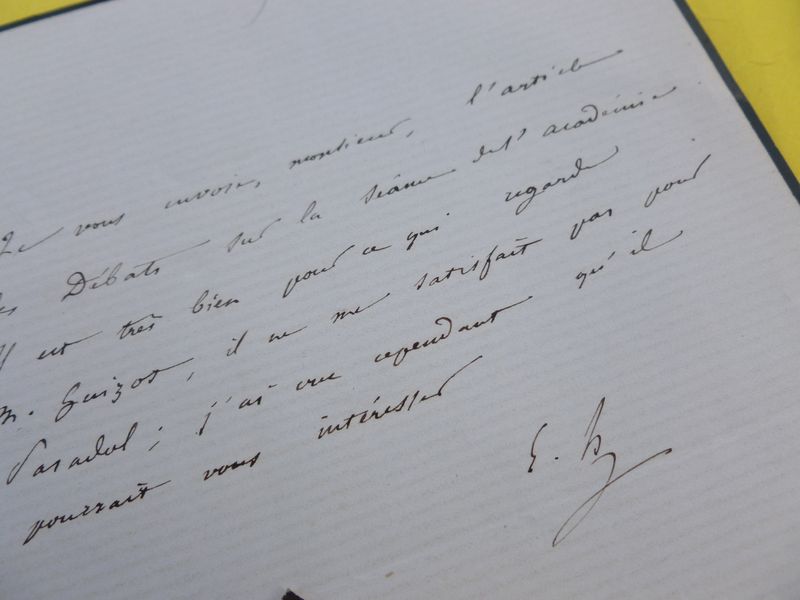 Je vous envoie, monsieur, l'article
des Débats sur la séance de l'académie.
Il est très bien pour ce qui regarde
M. Guizot, il ne me satisfait pas pour
Paradol ; j'ai cru cependant qu'il
pourrait vous intéresser